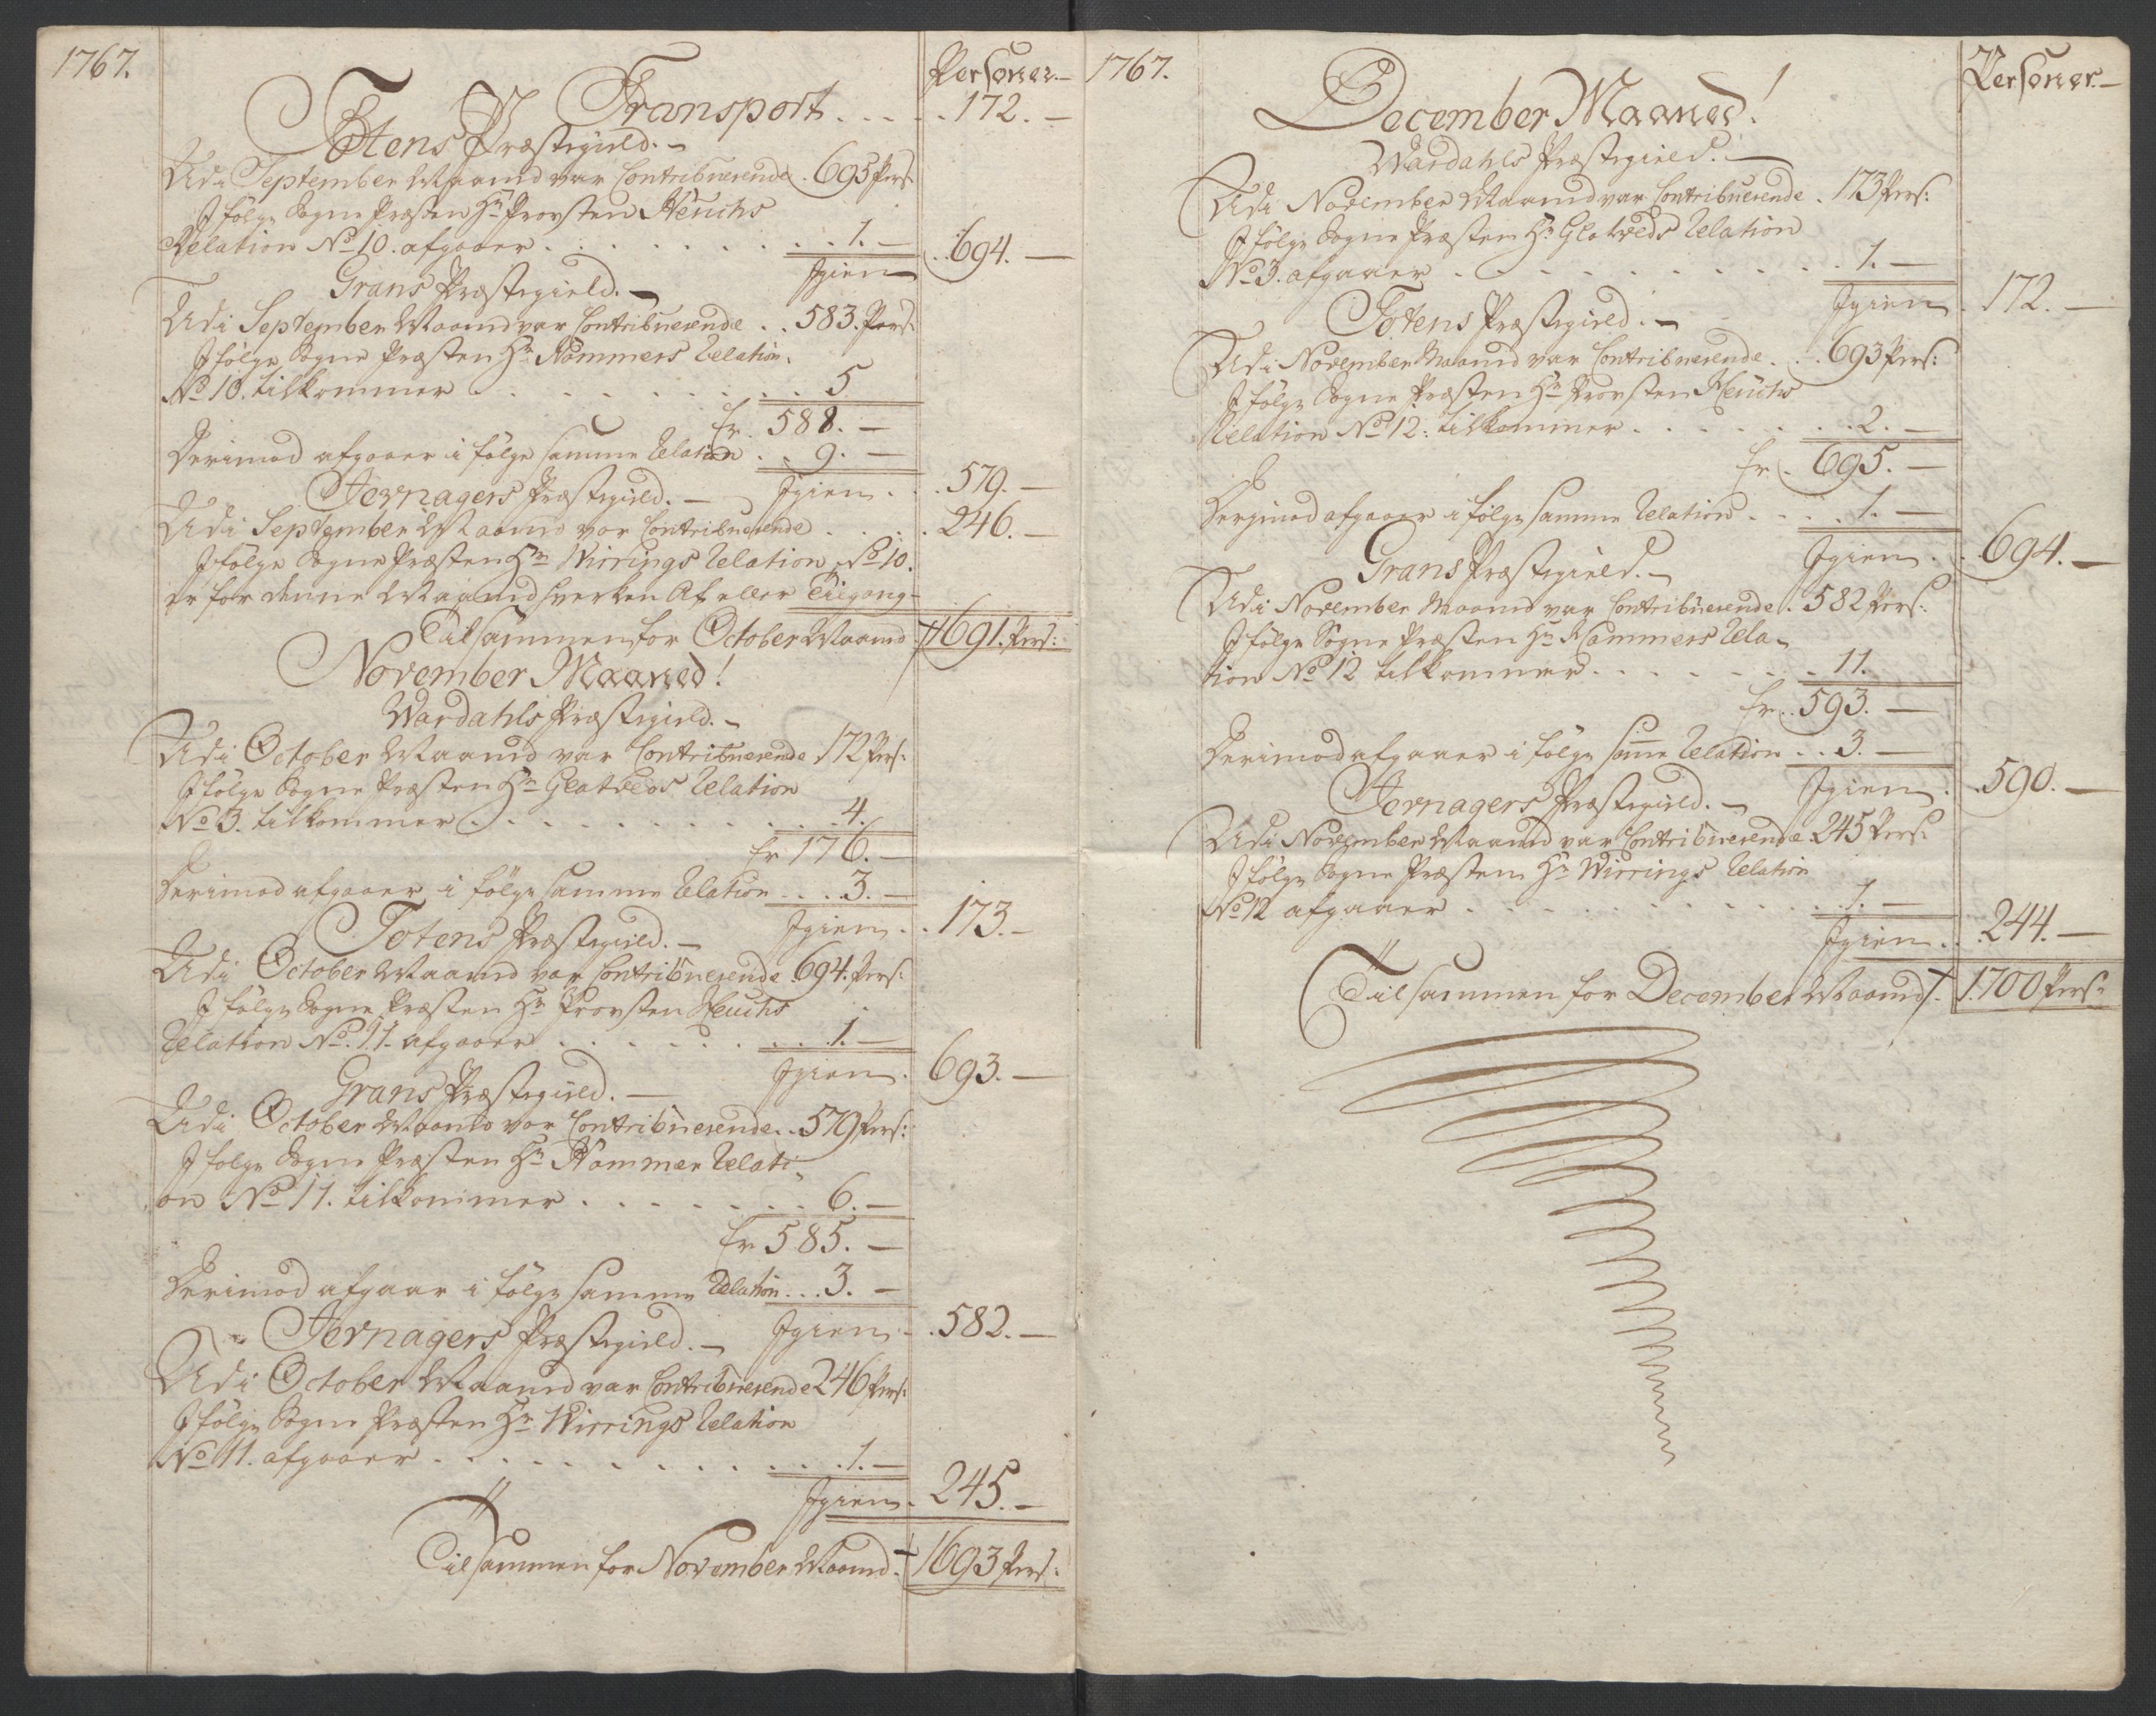 1767.
Personer.
Transport . . . . . 172. —
Totens Præstegield. —
Udi September Maaned var Contribuerende . 695 Pers:
Jfölge Sogne Præsten Hr Provsten Heuchs
Relation No 10. afgaaer . . . . . . . . . 1. —
Igien . . 694. —
Grans Præstegield. —
Udi September Maaned var Contribuerende . . 583. Pers:
Jfölge Sogne Præsten Hr Hammers Relation
No 10. tilkommer . . . . . . . . . 5
Er 588. —
Derimod afgaaer i fölge samme Relation . . 9. —
Igien . . 579. —
Jevnagers Præstegield. —
Udi September Maaned var Contribuerende . . . . 246. —
Jfölge Sogne Præsten Hr Wirrings Relation No 10.
er for denne Maaned hverken Af eller Tilgang —
Tilsammen for October Maaned 1691. Pers:
November Maaned!
Wardahls Præstegield. —
Udi October Maaned var Contribuerende 172 Pers:
Jfölge Sogne Præsten Hr Glatveds Relation
No 3. tilkommer . . . . . . . . . 4.
Er 176. —
Derimod afgaaer i fölge samme Relation . . . 3. —
Igien . . 173. —
Totens Præstegield. —
Udi October Maaned var Contribuerende . 694. Pers:
Jfölge Sogne Præsten Hr Provsten Heuchs
Relation No. 11. afgaaer . . . . . . . . 1. —
Igien . 693. —
Grans Præstegield. —
Udi October Maaned var Contribuerende . . 579 Pers:
Jfolge Sogne Præsten Hr Hammer Relati-
on No 11. tilkommer . . . . . . . 6. —
Er 585. —
Derimod afgaar i fölge samme Relation . . . 3. —
Igien . . 582. —
Jevnagers Præstegield. —
Udi October Maaned var Contribuerende 246 Pers:
Jfölge Sogne Præsten Hr Wirrings Relation
No 11. afgaaer . . . . . . . . . . 1. —
Igien . 245. —
Tilsammen for November Maaned . 1693 Pers:
1767.
Personer. —
December Maaned!
Wardahls Præstegield. —
Udi November Maaned var Contribuerende . 173 Pers:
Jfölge Sogne Præsten Hr Glatveds Relation
No 3. afgaaer . . . . . . . . . . 1. —
Igien . 172. —
Totens Præstegield. —
Udi November Maaned var Contribuerende . . 693 Pers:
Jfölge Sogne Præsten Hr Provsten Heuchs
Relation No 12: tilkommer . . . . . . . 2. —
Er . 695. —
Dergimod afgaaer i fölge samme Relation . . . . 1. —
Igien . . 694. —
Grans Præstegield. —
Udi November Maaned var Contribuerende . 582 Pers:
Jfölge Sogne Præsten Hr Hammers Rela-
tion No 12 tilkommer . . . . . . . 11.
Er . . 593. —
Derimod afgaaer i fölge same Relation . . 3. —
Igien . . 590. —
Jevnagers Præstegield. —
Udi November Maaned var Contribuerende 245 Pers:
Jfölge Sogne Præsten Hr Wirrings Relation
No 12 afgaaer . . . . . . . . . . 1. —
Igien . . 244. —
Tilsammen for December Maaned . 1700 Pers: